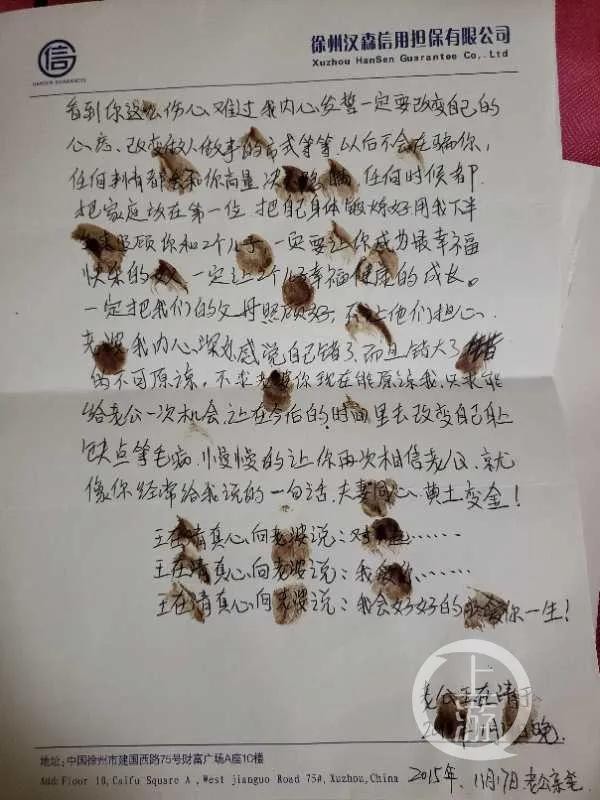 信
HANSEN GUARANTEE
徐州汉森信用担保有限公司
Xuzhou HanSen Guarantee Co,.Ltd
看到你这么伤心难过我内心发誓一定要改变自己的
心态、改变做人做事的方式等等.以后不会在骗你,
任何事情都会和你商量 决 任何时候都
把家庭放在第一位 把自己身体锻炼好用我下半
照顾你和2个儿子 一定要让你成为最幸福
快乐的 一定让2个儿子幸福健康的成长。
一定把我们的父母照顾好,不让他们担心.
老婆 我内心深处感觉自己错了 而且错大了
不可原谅,不求老婆你现在能原谅我,只求能
给老公一次机会,让在今后的时间里去改变自己身上
缺点等毛病.慢慢的让你再次相信老公.就
像你经常给我说的一句话.夫妻同心.黄土变金!
王在清真心向老婆说:对不起……
王在清真心向老婆说:我爱你……
王在清真心向老婆说:我会好好的 你一生!
老公王在清于
晚
2015年,11月17日 老公
上游
地址:中国徐州市建国西路75号财富广场A座10楼
Add:Floor 10,Caifu Square A ,West jianguo Road 75#,Xuzhou,China